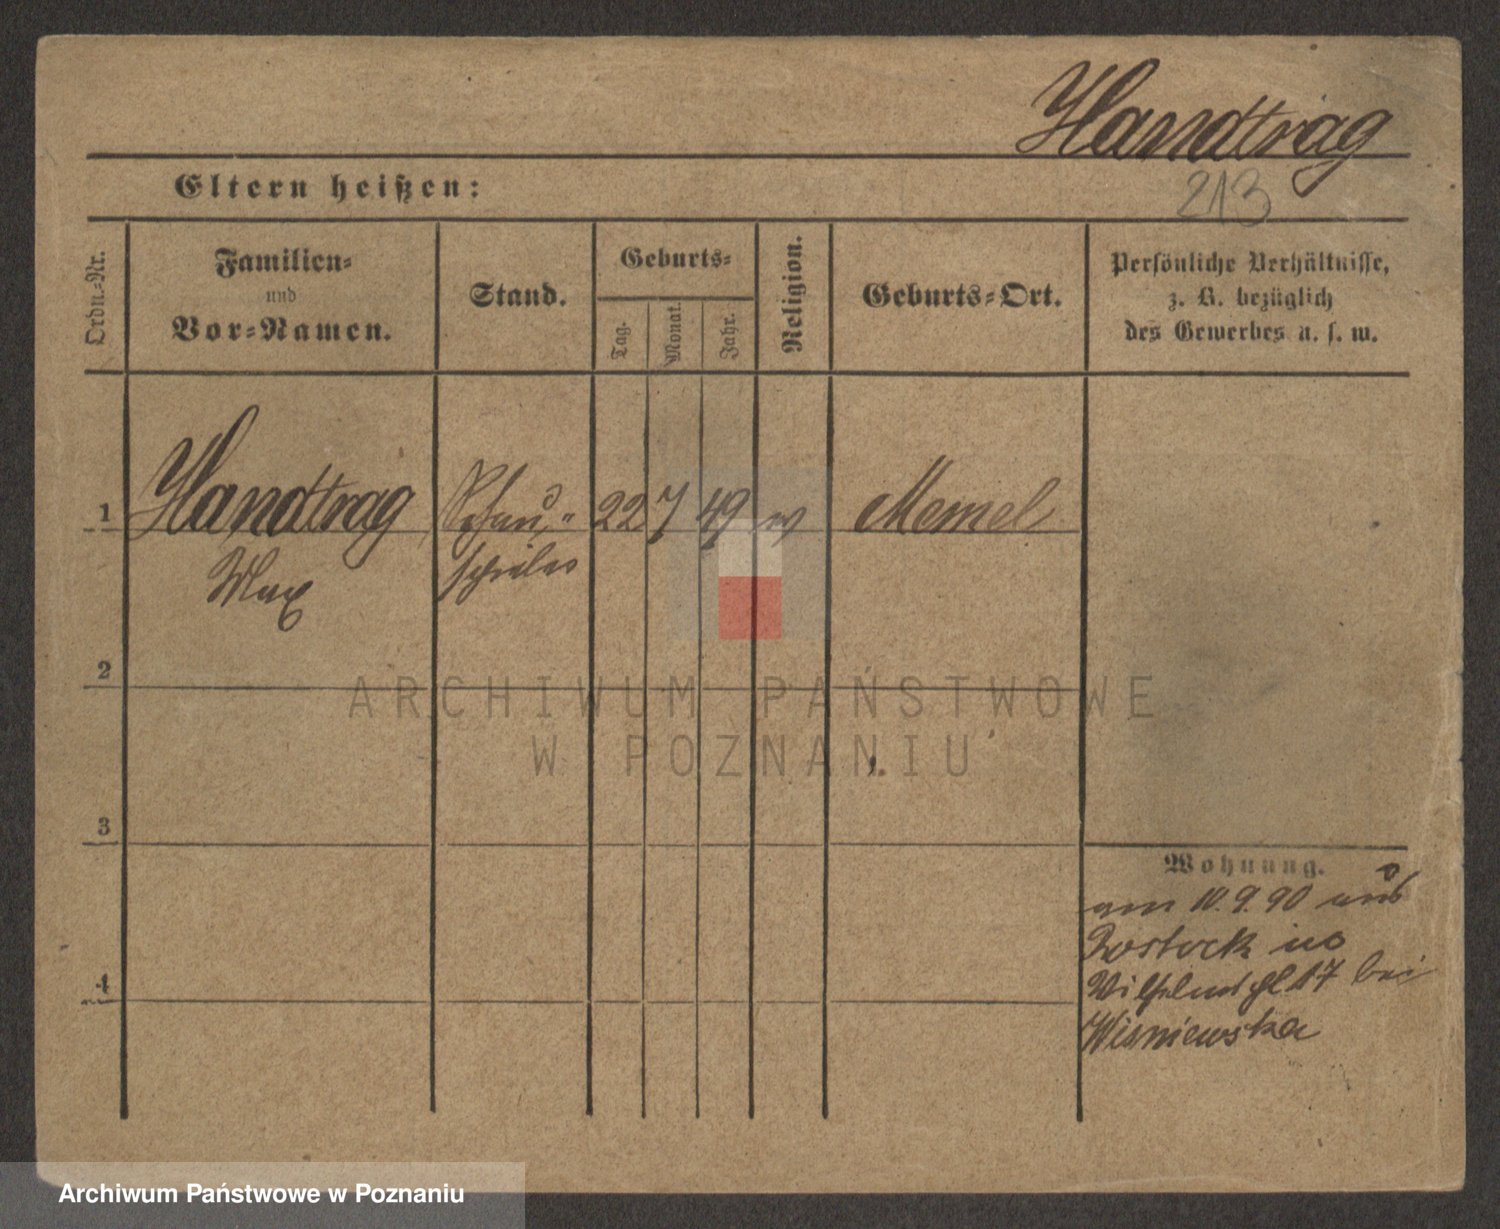 Handtrag
213
Eltern heißen:
Ordn.-Nr.
Familien-
und
Vor-Namen.
Stand.
Geburts-
Tag.
Monat.
Jahr.
Religion.
Geburts-Ort.
Persönliche Verhältnisse,
z. B. bezüglich
des Gewerbes u. s. w.
1
Handtrag
Schau-
spieler
22
7
49
Memel
Max
2
ARCHIWUM PAŃSTWOWE
W POZNANIU
3
Wohnung.
am 10.9.90 aus
Rostock
Wilhelmspl 17 bei
Wisniewska
4
Archiwum Państwowe w Poznaniu